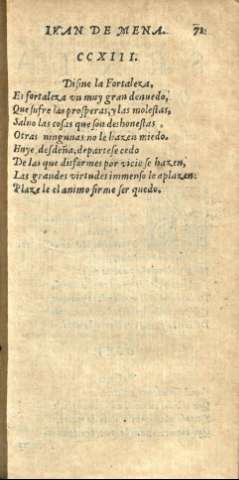 IVAN DE MENA. 72
CCXIII.
Difine la Fortaleza,
Es fortaleza vn muy gran denuedo,
Que sufre las prosperas, y las molestas,
Saluo las cosas que son deshonestas,
Otras ningunas no le hazen miedo.
Huye, desdeña, departese cedo
De las que disformes por vicio se hazen,
Las grandes virtudes immenso le aplazen:
Plaze le el animo firme ser quedo.